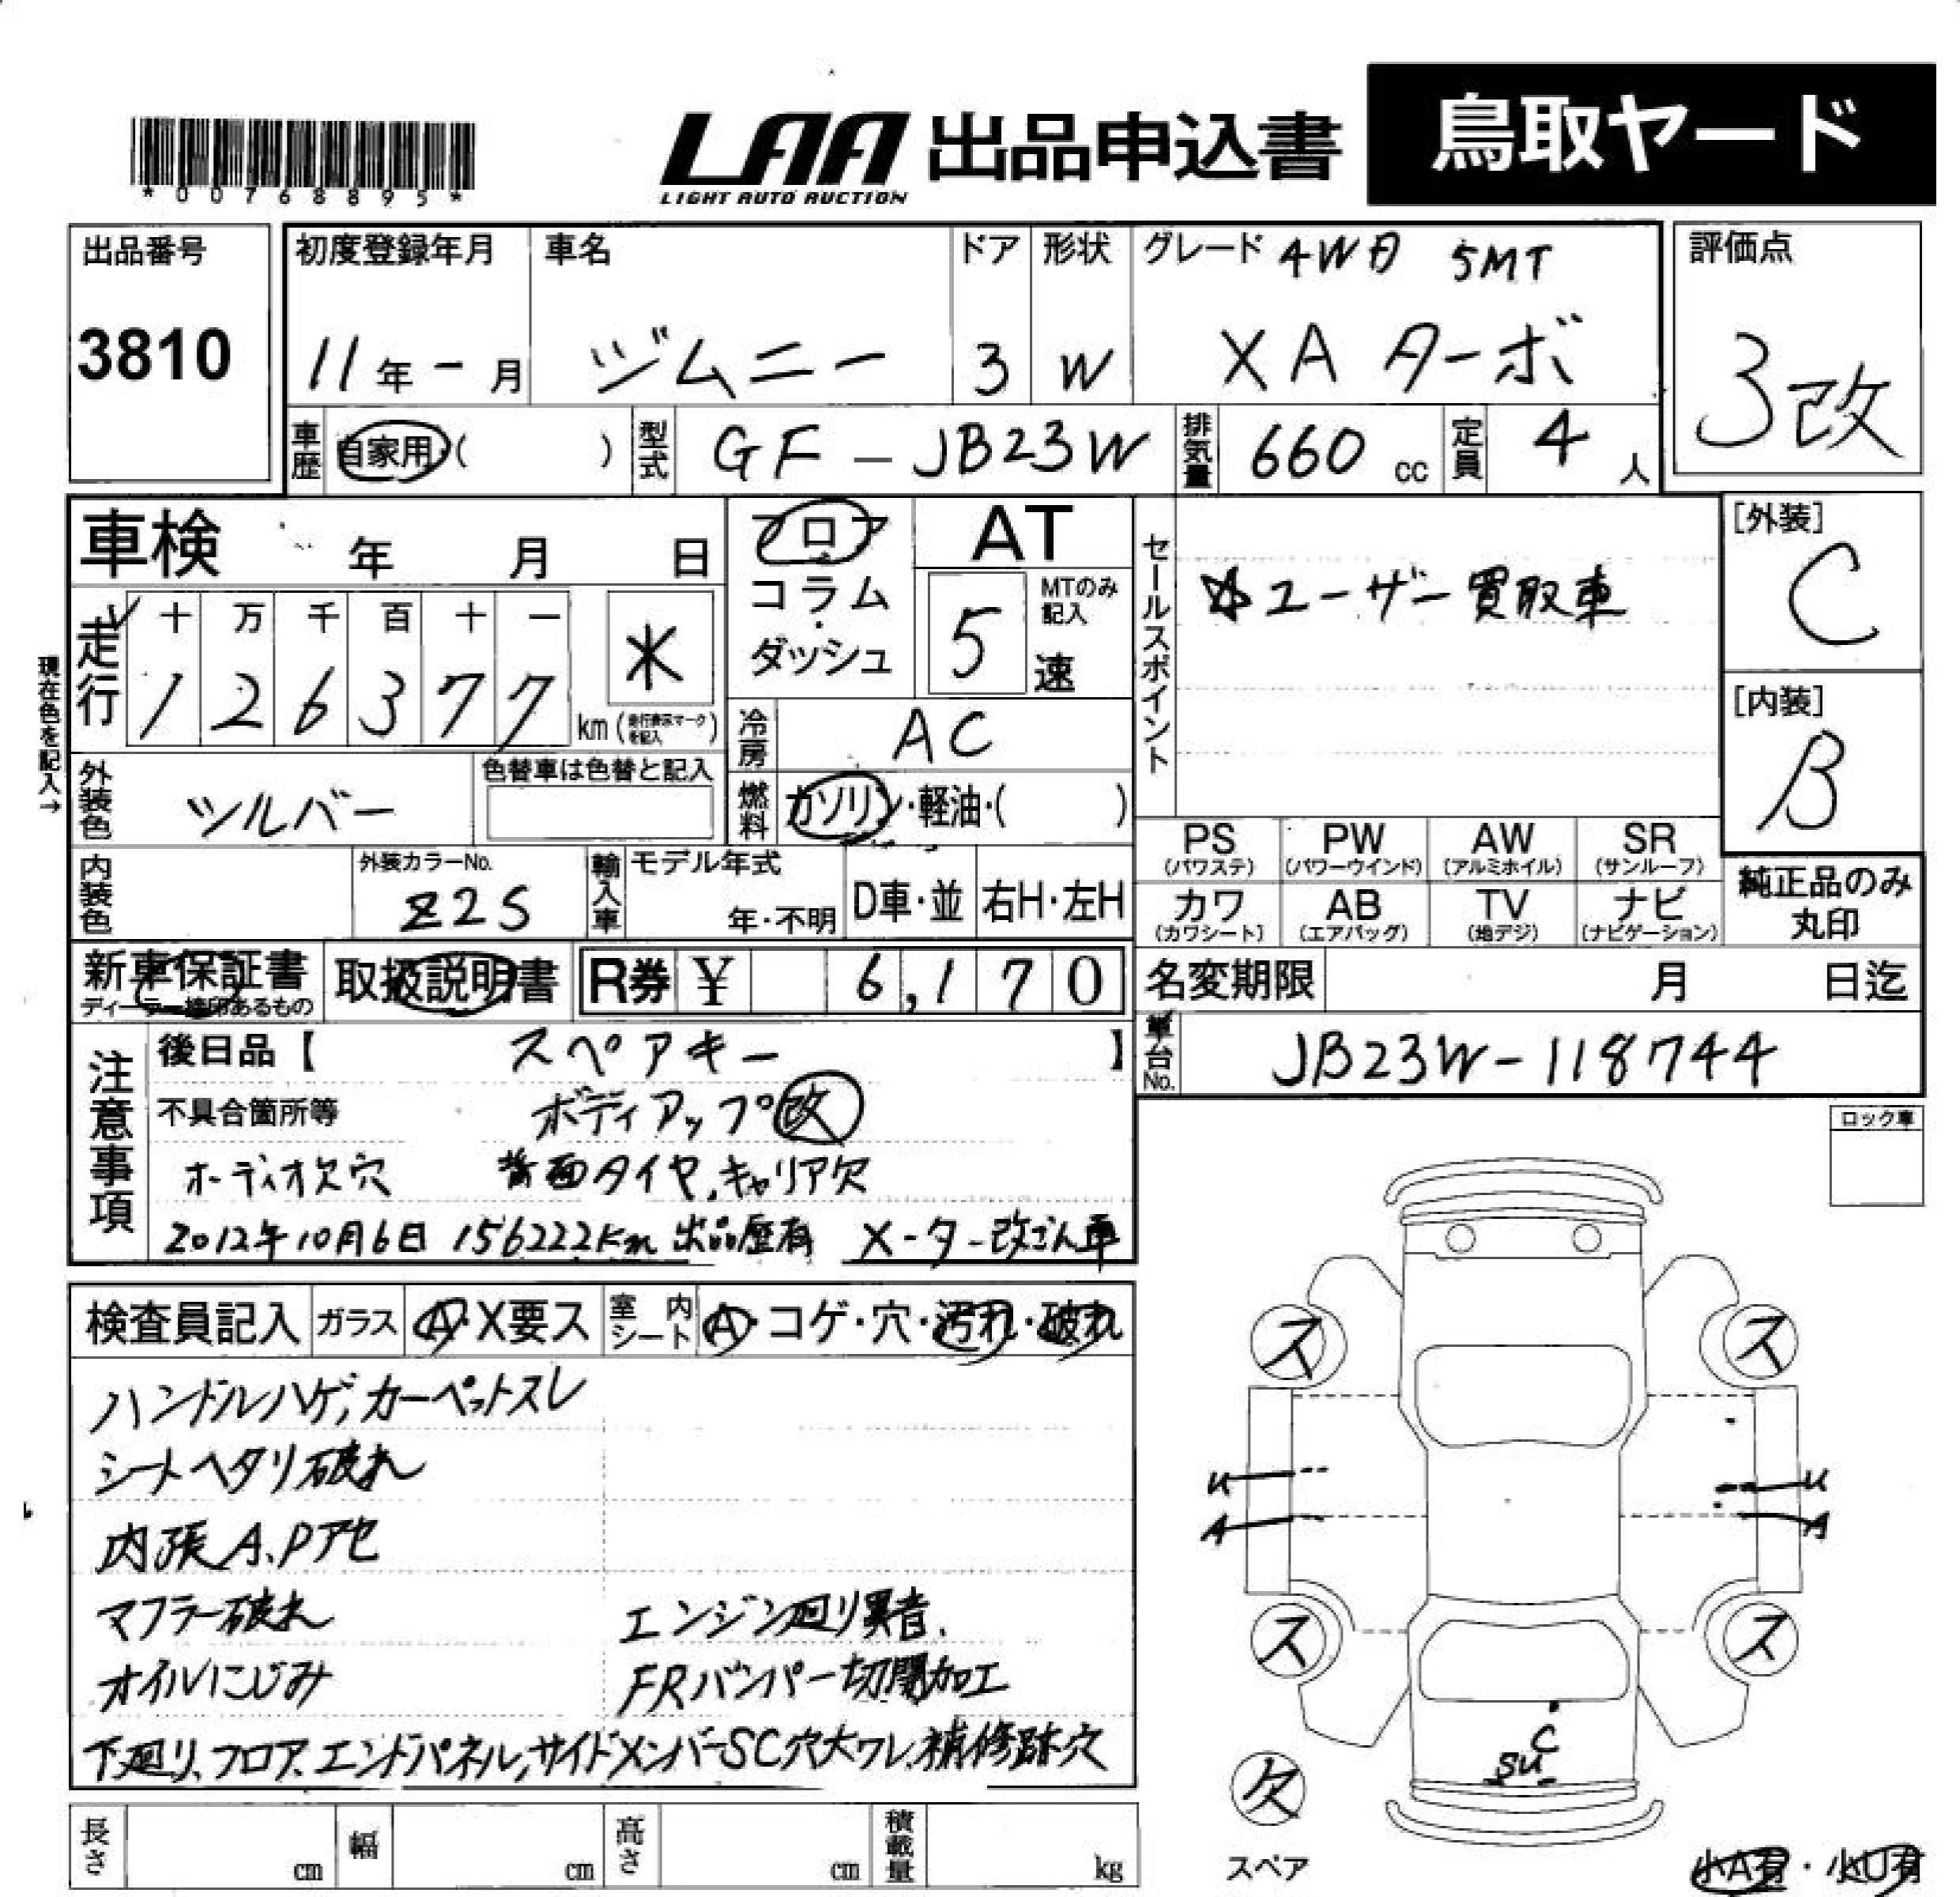 鳥取ヤード
LAA 出品申込書
LIGHT AUTO AUCTION
*00768895*
出品番号
3810
初度登録年月
11年-月
車名
ジムニー
ドア
3
形状
W
グレード 4WD 5MT
XA ターボ
評価点
3改
車歴
自家用・( )
型式
GF-JB23W
排気量
660 cc
定員
4 人
車検 年 月 日
フロア
コラム・
ダッシュ
AT
MTのみ記入
5 速
セールスポイント
☆ユーザー買取車
[外装]
C
[内装]
B
現在色を記入→
走行
十 万 千 百 十 一
1 2 6 3 7 7
km (走行表示マークを記入)
*
冷房
AC
外装色
シルバー
色替車は色替と記入
燃料
ガソリン・軽油・( )
PS (パワステ)
PW (パワーウインド)
AW (アルミホイル)
SR (サンルーフ)
内装色
外装カラーNo.
Z2S
輸入車
モデル年式
年・不明
D車・並
右H・左H
カワ (カワシート)
AB (エアバッグ)
TV (地デジ)
ナビ (ナビゲーション)
純正品のみ丸印
新車保証書
ディーラー捺印あるもの
取扱説明書
R券 ¥ 6,170
名変期限 月 日迄
車台No.
JB23W-118744
注意事項
後日品【 スペアキー 】
不具合箇所等 ボディアップ 改
オーディオ欠穴 背面タイヤ、キャリア欠
2012年10月6日 156222Km 出品歴有 メーター改ざん車
ロック車
検査員記入
ガラス
A・X要ス
室内シート
A・コゲ・穴・汚れ・破れ
ハンドルハゲ、カーペットスレ
シートヘタリ破れ
内張A、Pアセ
マフラー破れ エンジン廻り異音.
オイルにじみ FRバンパー切開加工
下廻り、フロア、エンドパネル、サイドメンバーSC穴大ワレ、補修跡穴
ス ス
U U
A A
ス ス
C
SU
欠
スペア
小A有・小U有
長さ cm
幅 cm
高さ cm
積載量 kg